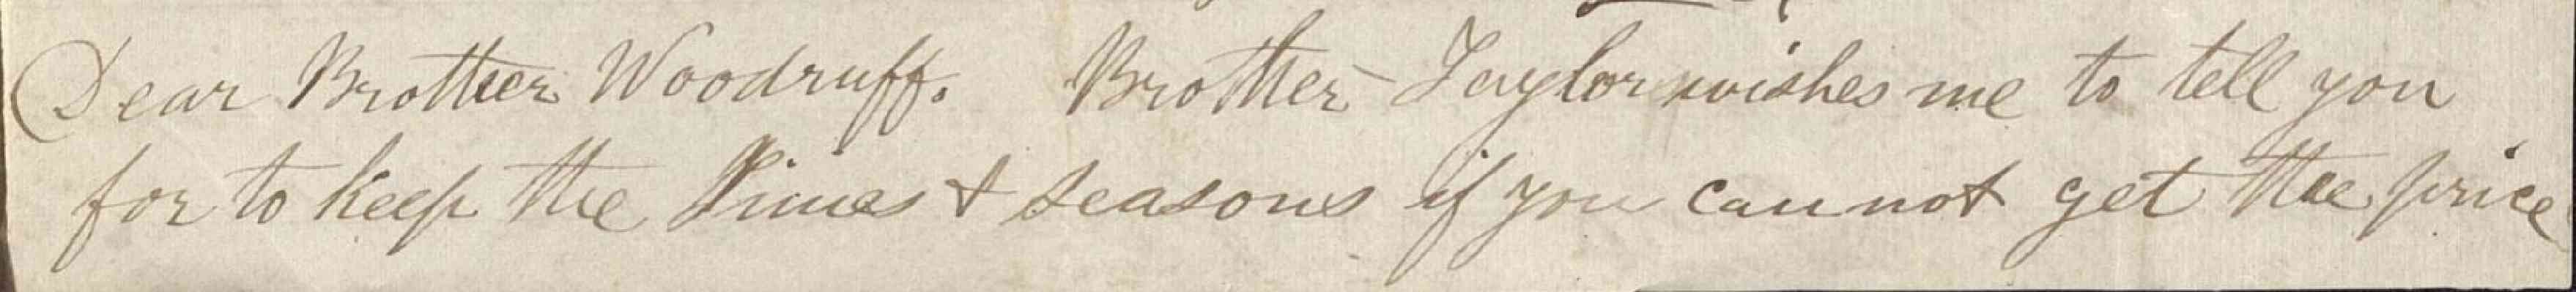 Dear Brother Woodruff. Brother Taylor wishes me to tell you
for to keep the Times & seasons if you cannot get the price